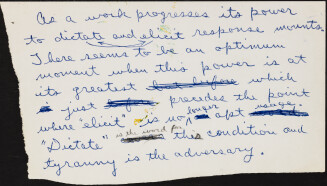 As a work progresses its power
to dictate and elicit response mounts.
There seems to be an optimum
moment when this power is at
its greatest which
is just precedes the point
where "elicit" is no longer apt
"Dictate" is the word for this condition and
tyranny is the adversary.